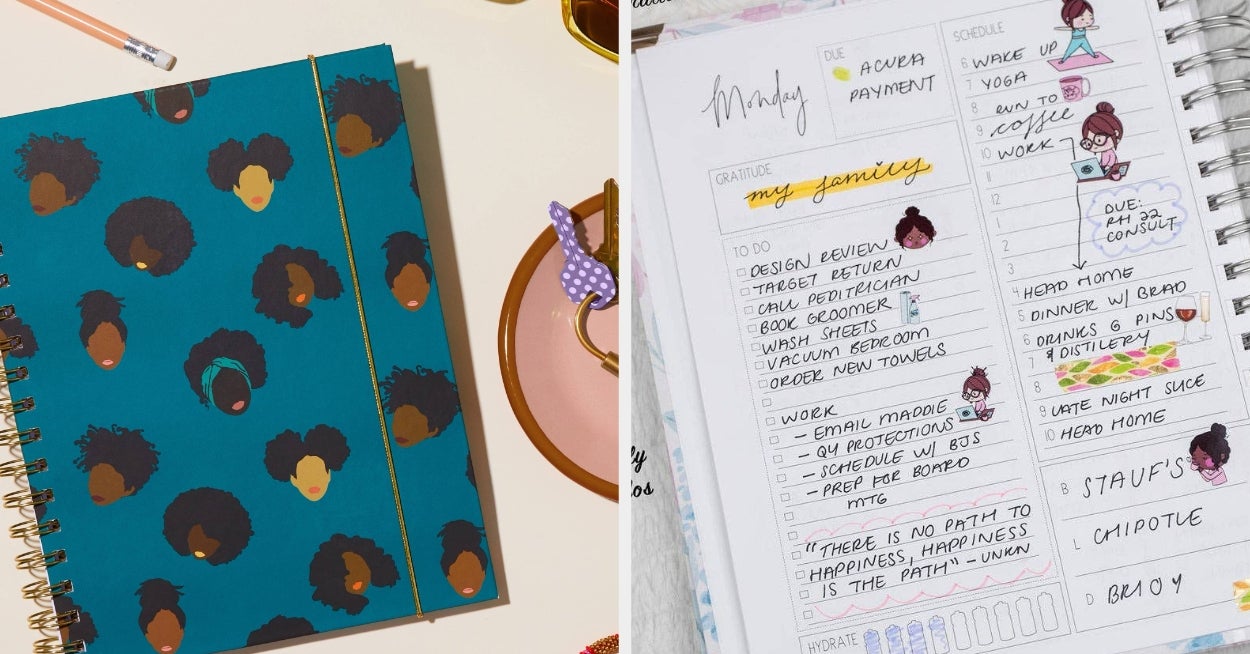 Monday
DUE
ACURA
PAYMENT
GRATITUDE
my family
TO DO
DESIGN REVIEW
TARGET RETURN
CALL PEDITRICIAN
BOOK GROOMER
WASH SHEETS
VACUUM BEDROOM
ORDER NEW TOWELS
WORK
- EMAIL MADDIE
- Q4 PROTECTIONS
- SCHEDULE W/ BJS
- PREP FOR BOARD
MTG
"THERE IS NO PATH TO
HAPPINESS, HAPPINESS
IS THE PATH" - UNKN
HYDRATE
SCHEDULE
6 WAKE UP
7 YOGA
8 RUN TO
9 coffee
10 WORK
11
12
1
2
3
DUE:
RH 22
CONSULT
4 HEAD HOME
5 DINNER W/ BRAD
6 DRINKS @ PINS
7 & DISTILERY
8
9 LATE NIGHT SLICE
10 HEAD HOME
B STAUF'S
L CHIPOTLE
D BRIOY